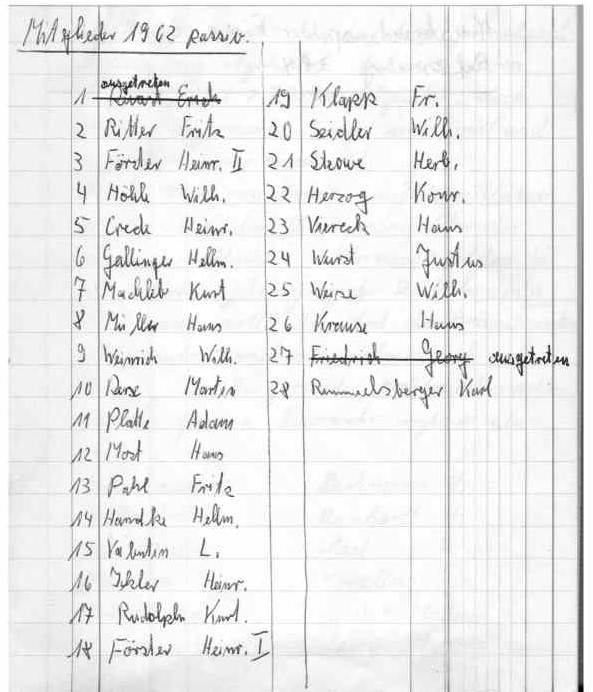 Mitglieder 1962 passiv.
ausgetreten
1 Erich
2 Ritter Fritz
3 Förster Heinr. II
4 Höhle Wilh.
5 Crede Heinr.
6 Gallinger Hellm.
7 Machleb Kurt
8 Müller Hans
9 Weinrich Wilh.
10 Martin
11 Platte Adam
12 Most Hans
13 Pahl Fritz
14 Handke Hellm.
15 Valentin L.
16 Ickler Heinr.
17 Rudolph Kurt.
18 Förster Heinr. I
19 Klapp Fr.
20 Seidler Wilh.
21 Skowe Herb.
22 Herzog Konr.
23 Viereck Hans
24 Wurst Justus
25 Weise Wilh.
26 Krause Hans
27 Friedrich Georg ausgetreten
28 Rummelsberger Karl